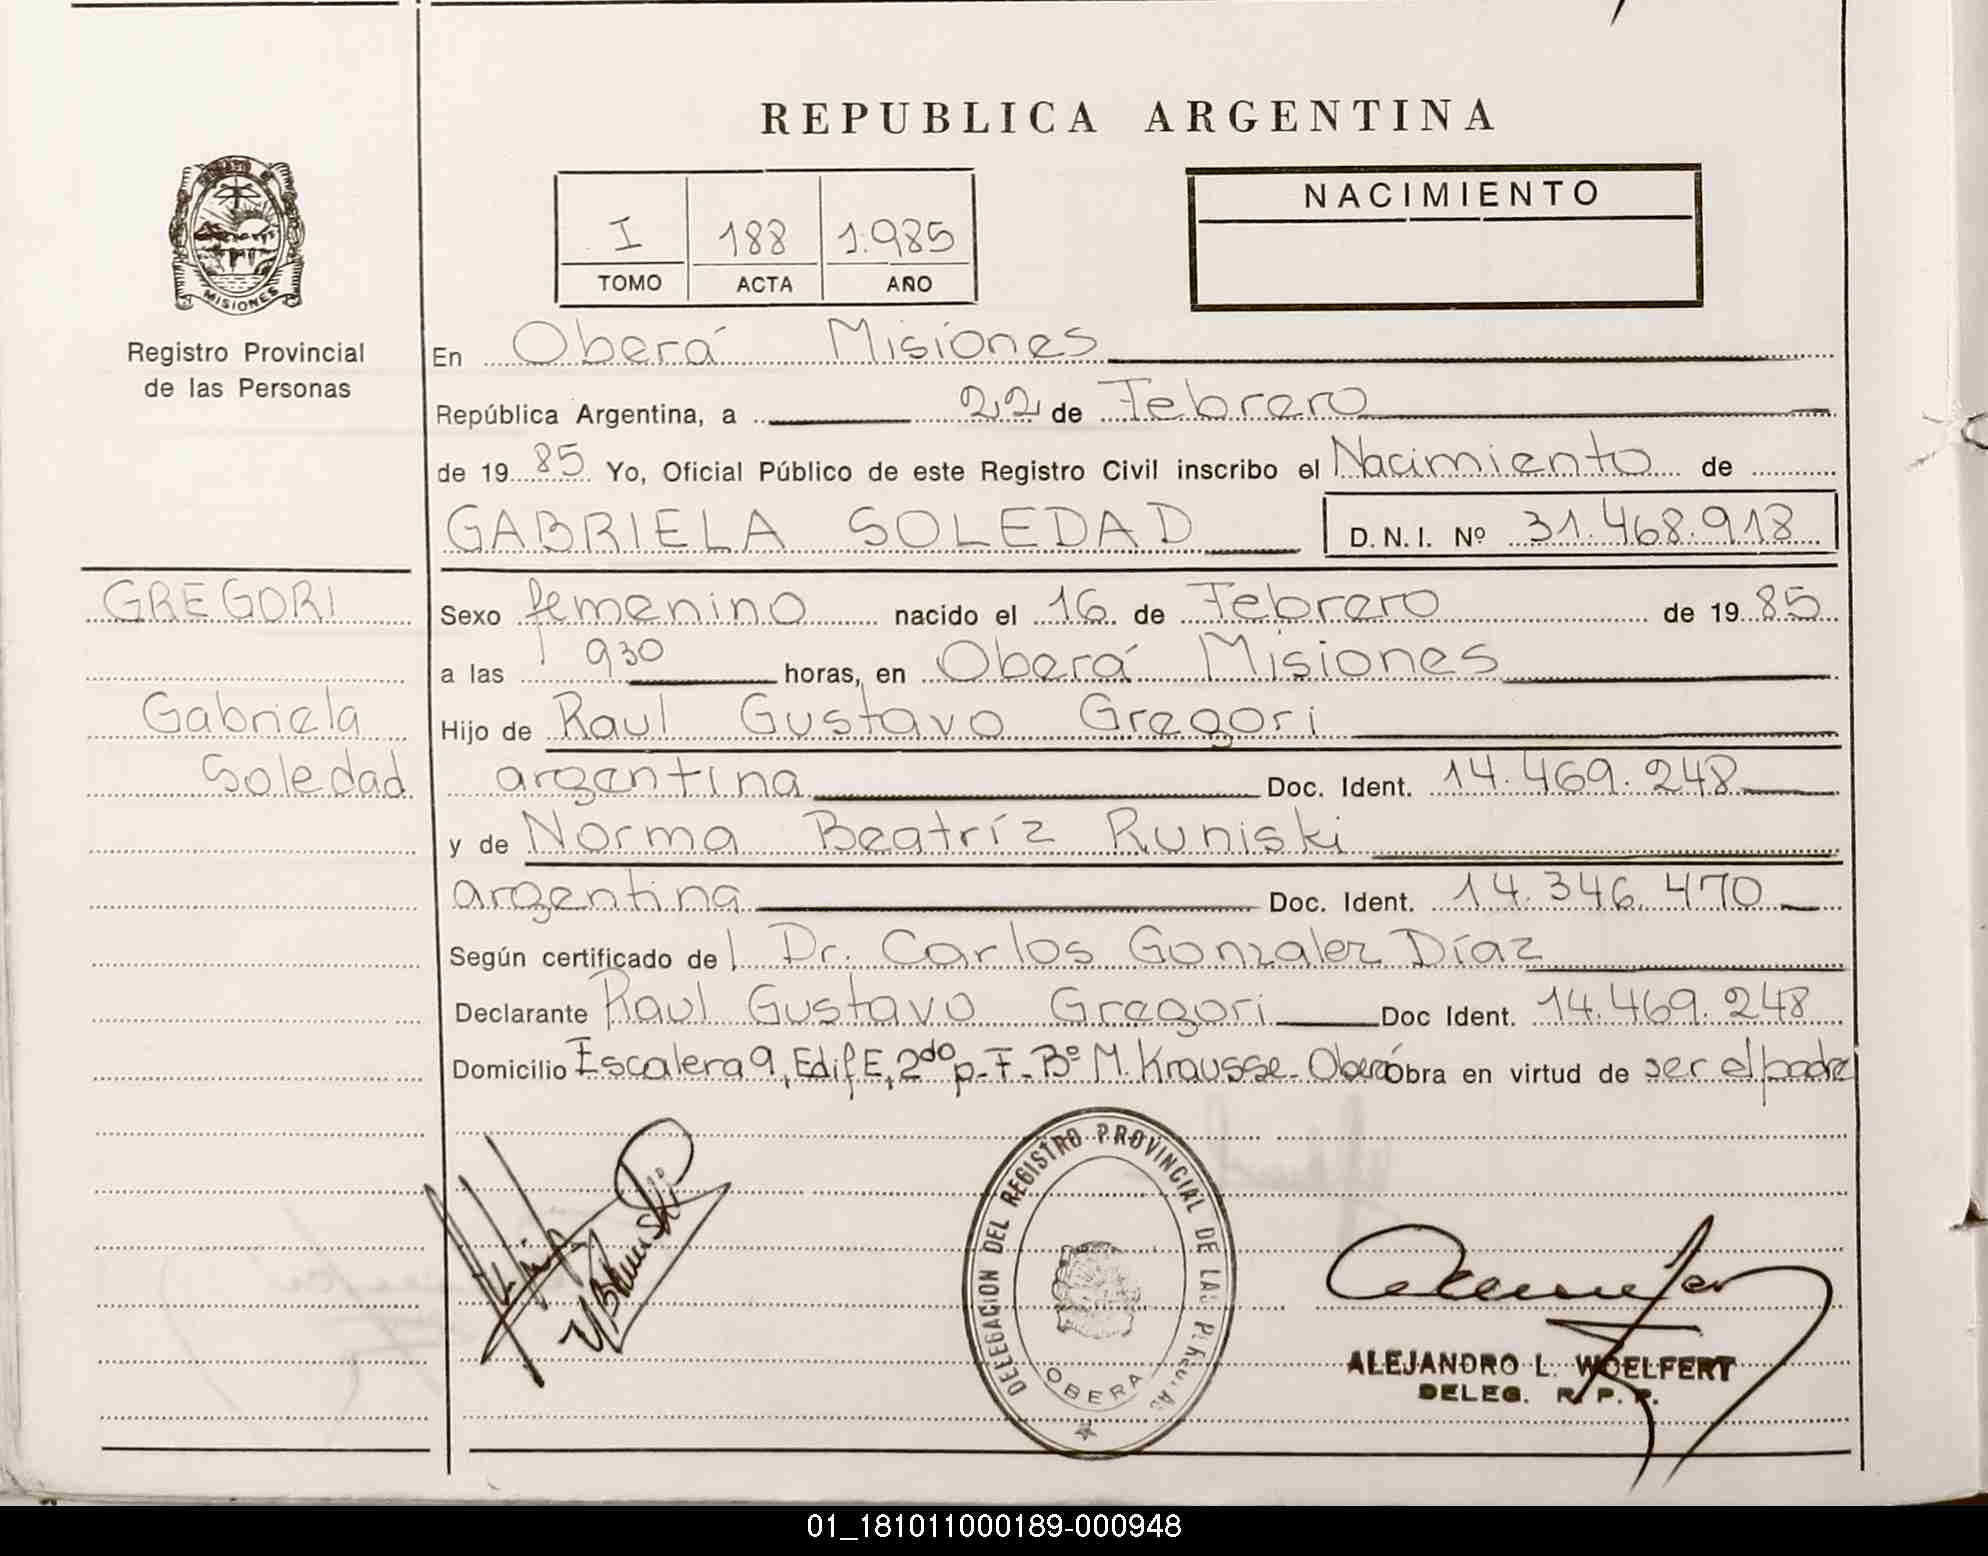 REPUBLICA ARGENTINA
I 188 1.985
TOMO ACTA AÑO
NACIMIENTO
MISIONES
Registro Provincial
de las Personas
En Oberá Misiones
República Argentina, a 22 de Febrero
de 1985 Yo, Oficial Público de este Registro Civil inscribo el Nacimiento de
GABRIELA SOLEDAD D.N.I. Nº 31.468.918
GREGORI
Gabriela
Soledad
Sexo femenino nacido el 16 de Febrero de 1985
a las 930 horas, en Oberá Misiones
Hijo de Raul Gustavo Gregori
argentina Doc. Ident. 14.469.248
y de Norma Beatríz Runiski
argentina Doc. Ident. 14.346.470
Según certificado de Dr. Carlos Gonzalez Díaz
Declarante Raul Gustavo Gregori Doc Ident. 14.469.248
Domicilio Escalera 9, Edif E, 2do p-F-Bº M. Krausse-Oberá Obra en virtud de ser el padre
DELEGACION DEL REGISTRO PROVINCIAL DE LAS
OBERA
ALEJANDRO L. WOELFERT
DELEG. R.P.P.
01_181011000189-000948